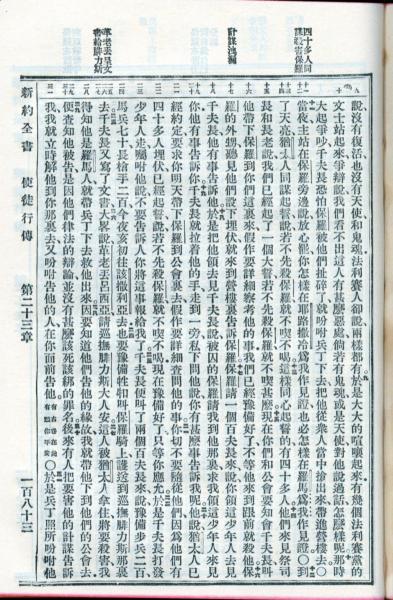 四十多人同謀殺害保羅
計謀洩漏
革老丟呈文書給腓力斯
說沒有復活也沒有天使和鬼魂法利賽人卻說兩樣都有於是大大的喧嚷起來有幾個法利賽黨的
文士站起來爭辯說我們看不出這人有甚麼惡處倘若有鬼魂或是天使對他說過話怎麼樣呢那時
大起爭吵千夫長恐怕保羅被他們扯碎了就吩咐兵丁下去把他從衆人當中搶出來帶進營樓去〇
當夜主站在保羅旁邊說放心罷你怎樣在耶路撒冷爲我作見證也必怎樣在羅馬爲我作見證〇到
了天亮猶太人同謀起誓說若不先殺保羅就不喫不喝這樣同心起誓的有四十多人他們來見祭司
長和長老說我們已經起了一個大誓若不先殺保羅就不喫甚麼現在你們和公會要知會千夫長叫
他帶下保羅到你們這裏來假作要詳細察考他的事我們已經豫備好了不等他來到跟前就殺他保
羅的外甥聽見他們設下埋伏就來到營樓裏告訴保羅保羅請一個百夫長來說你領這少年人去見
千夫長他有事告訴他於是把他領去見千夫長說被囚的保羅請我到他那裏求我領這少年人來見
你他有事告訴你千夫長就拉着他的手走到一旁私下問他說你有甚麼事告訴我呢他說猶太人已
經約定要求你明天帶下保羅到公會裏去假作要詳細查問他的事你切不要隨從他們因爲他們有
四十多人埋伏已經起誓說若不先殺保羅就不喫不喝現在豫備好了只等你應允於是千夫長打發
少年人走囑咐他說不要告訴人你將這事報給我了千夫長便叫了兩個百夫長來說豫備步兵二百
馬兵七十長槍手二百今夜亥初往該撒利亞去也要豫備牲口叫保羅騎上護送到巡撫腓力斯那裏
去千夫長又寫了文書大略說革老丟呂西亞請巡撫腓力斯大人安這人被猶太人拿住將要殺害我
得知他是羅馬人就帶兵丁下去救他出來因要知道他們告他的緣故我就帶他下到他們的公會去
便查知他被告是因他們律法的辯論並沒有甚麼該死該綁的罪名後來有人把要害他的計謀告訴
我我就立時解他到你那裏去又吩咐告他的人在你面前告他有古卷在此有願你平安〇於是兵丁照所吩咐他
新約全書 使徒行傳 第二十三章 一百八十三